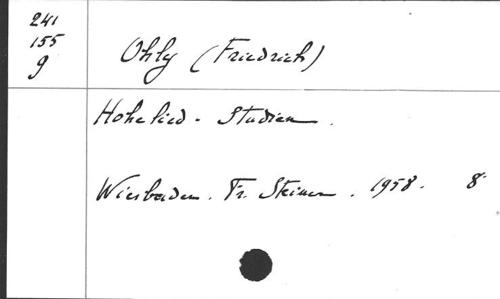 241
155
9
Ohly (Friedrich)
Hohelied - Studien.
Wiesbaden. Fr. Steiner. 1958. 8